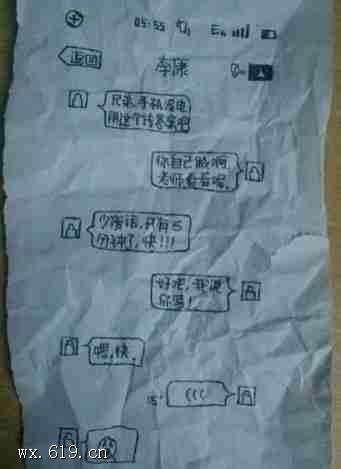 05:55 E
返回 李康
兄弟,手机没电
用这个传答案吧
你自己做啊,
老师看着呢,
少废话,只有5
分钟了,快!!!
好吧,我说
你写!
嗯,快,
15" (((
wx.619.cn